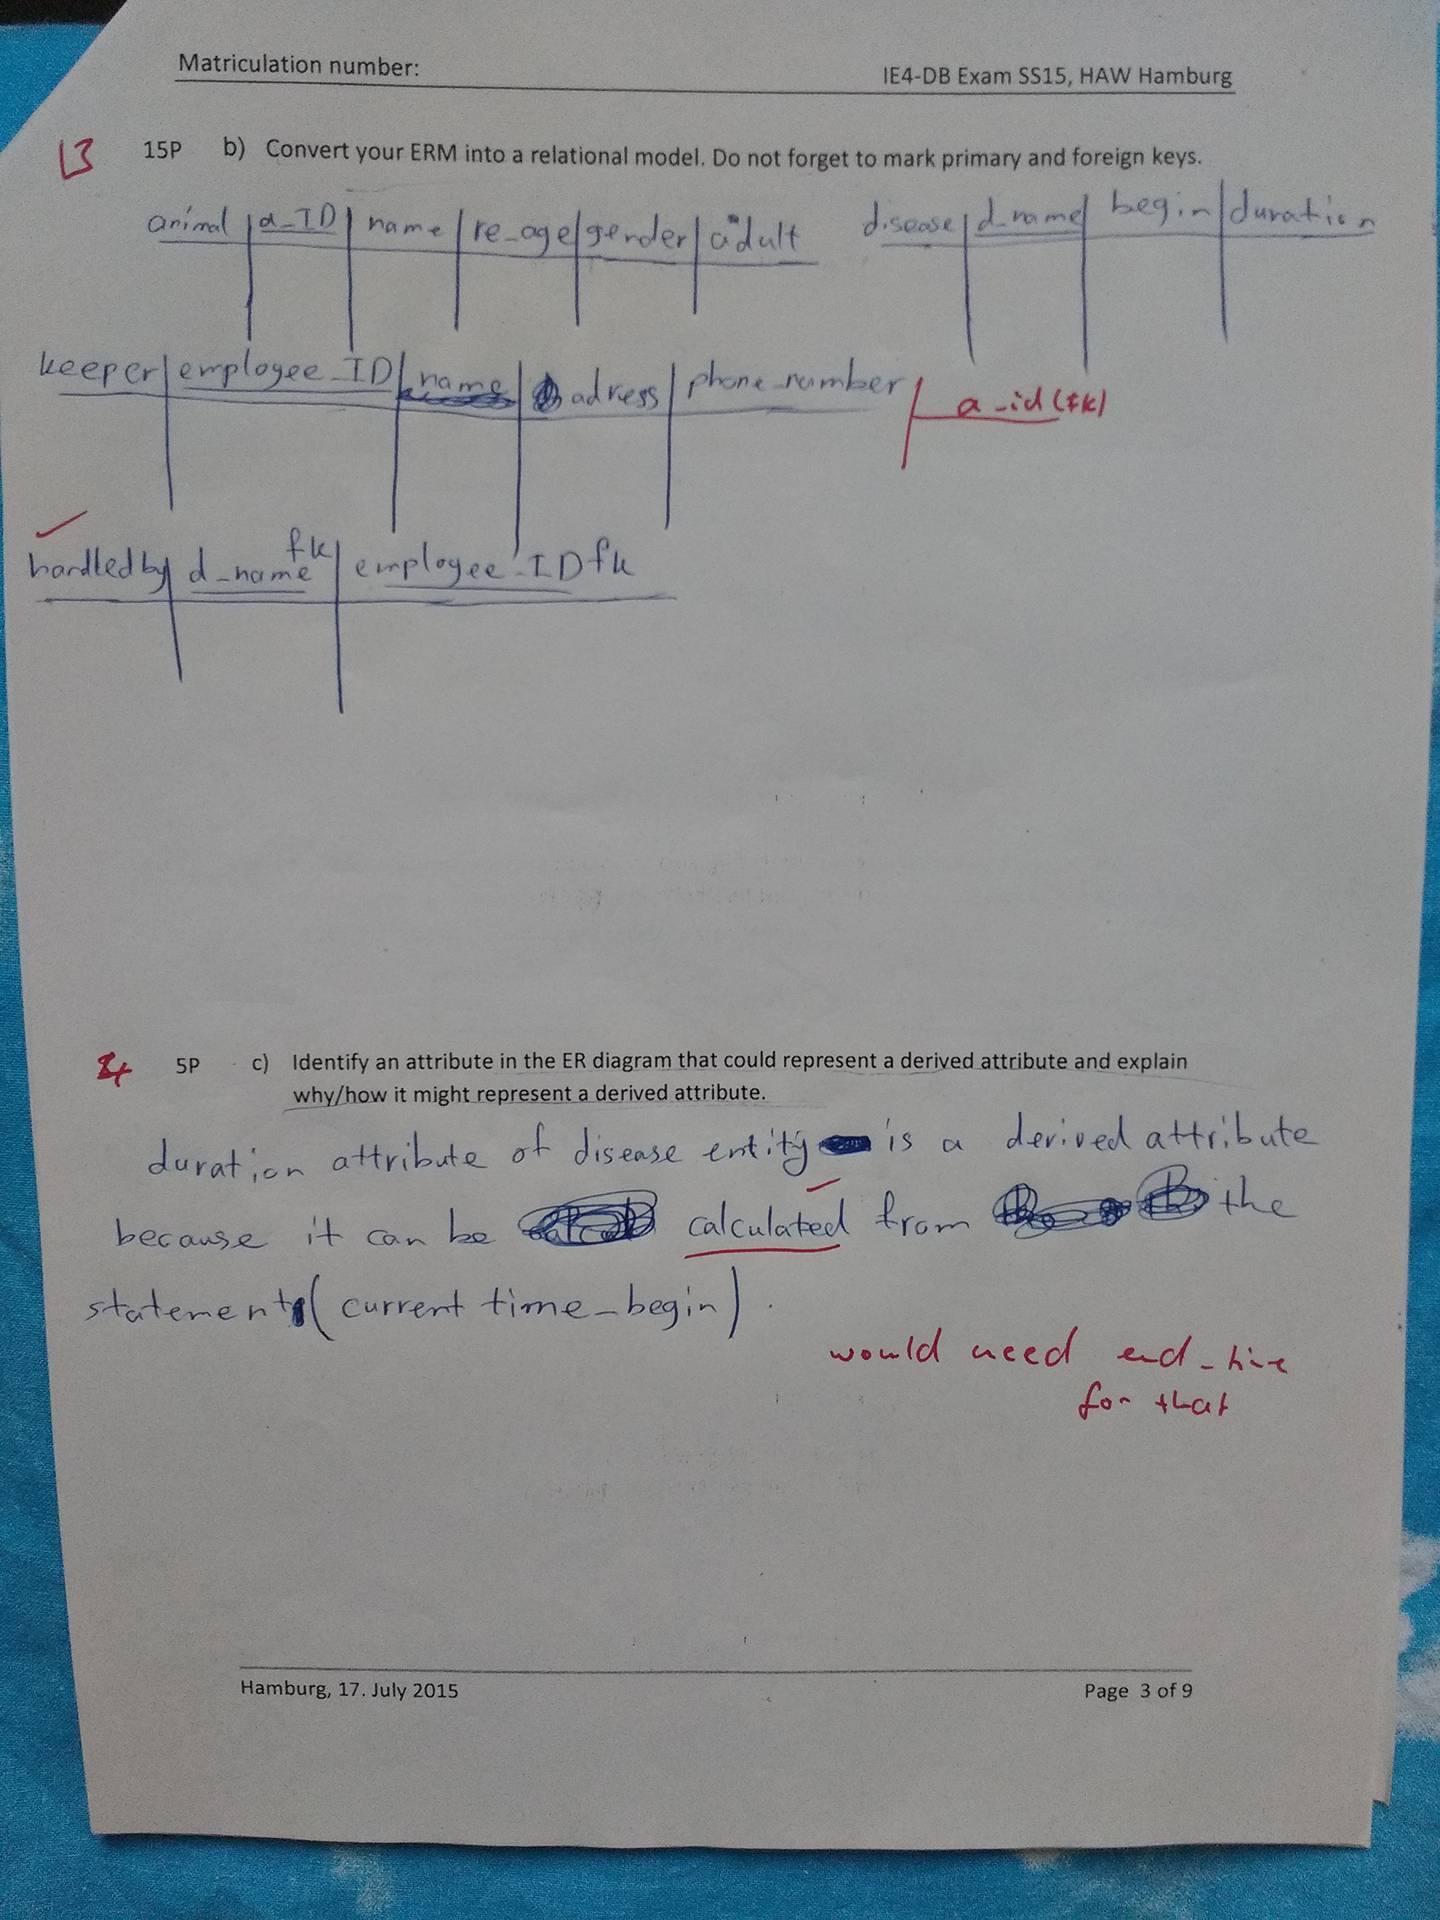 Matriculation number:
IE4-DB Exam SS15, HAW Hamburg
13 15P b) Convert your ERM into a relational model. Do not forget to mark primary and foreign keys.
animal a_ID name re_age gender adult
disease d_name begin duration
keeper employee_ID name adress phone_number a_id (fk)
handled by d_name fk employee_ID fk
4 5P c) Identify an attribute in the ER diagram that could represent a derived attribute and explain
why/how it might represent a derived attribute.
duration attribute of disease entity is a derived attribute
because it can be calculated from the
statement (current time - begin).
would need end_time
for that
Hamburg, 17. July 2015
Page 3 of 9